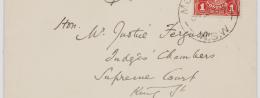 Hon.
Mr. Justice Ferguson
Judges' Chambers
Supreme Court
King St
1
N.S.W